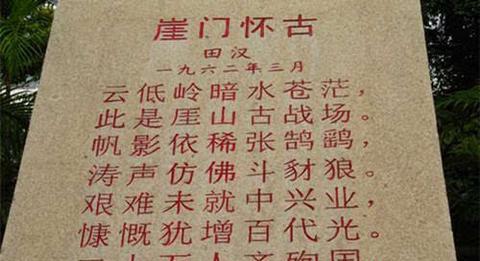 崖门怀古
田汉
一九六二年三月
云低岭暗水苍茫，
此是崖山古战场。
帆影依稀张鹄鹢，
涛声仿佛斗豺狼。
艰难未就中兴业，
慷慨犹增百代光。